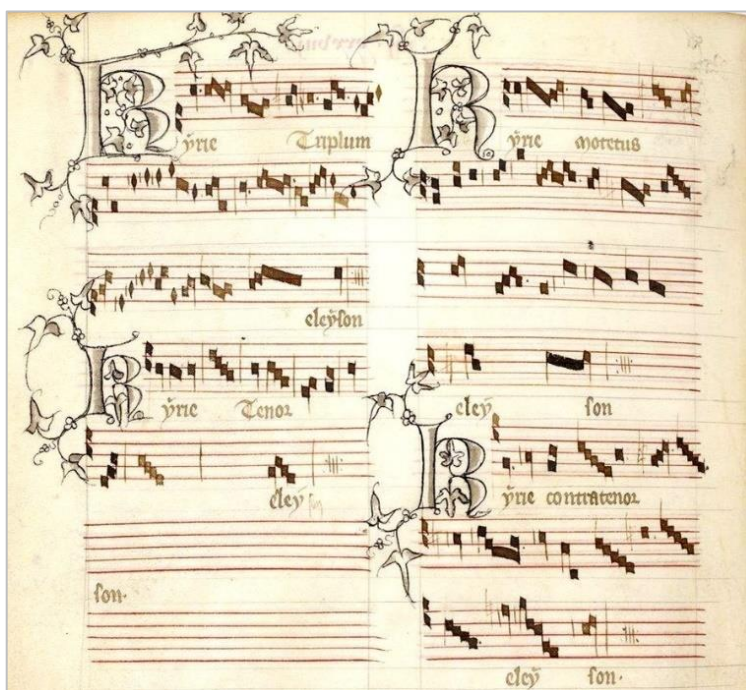 Kÿrie Triplum
eleÿson
Kÿrie Tenor
eleÿ
son.
Kÿrie motetus
eleÿ son
Kÿrie contratenor
eleÿ son.